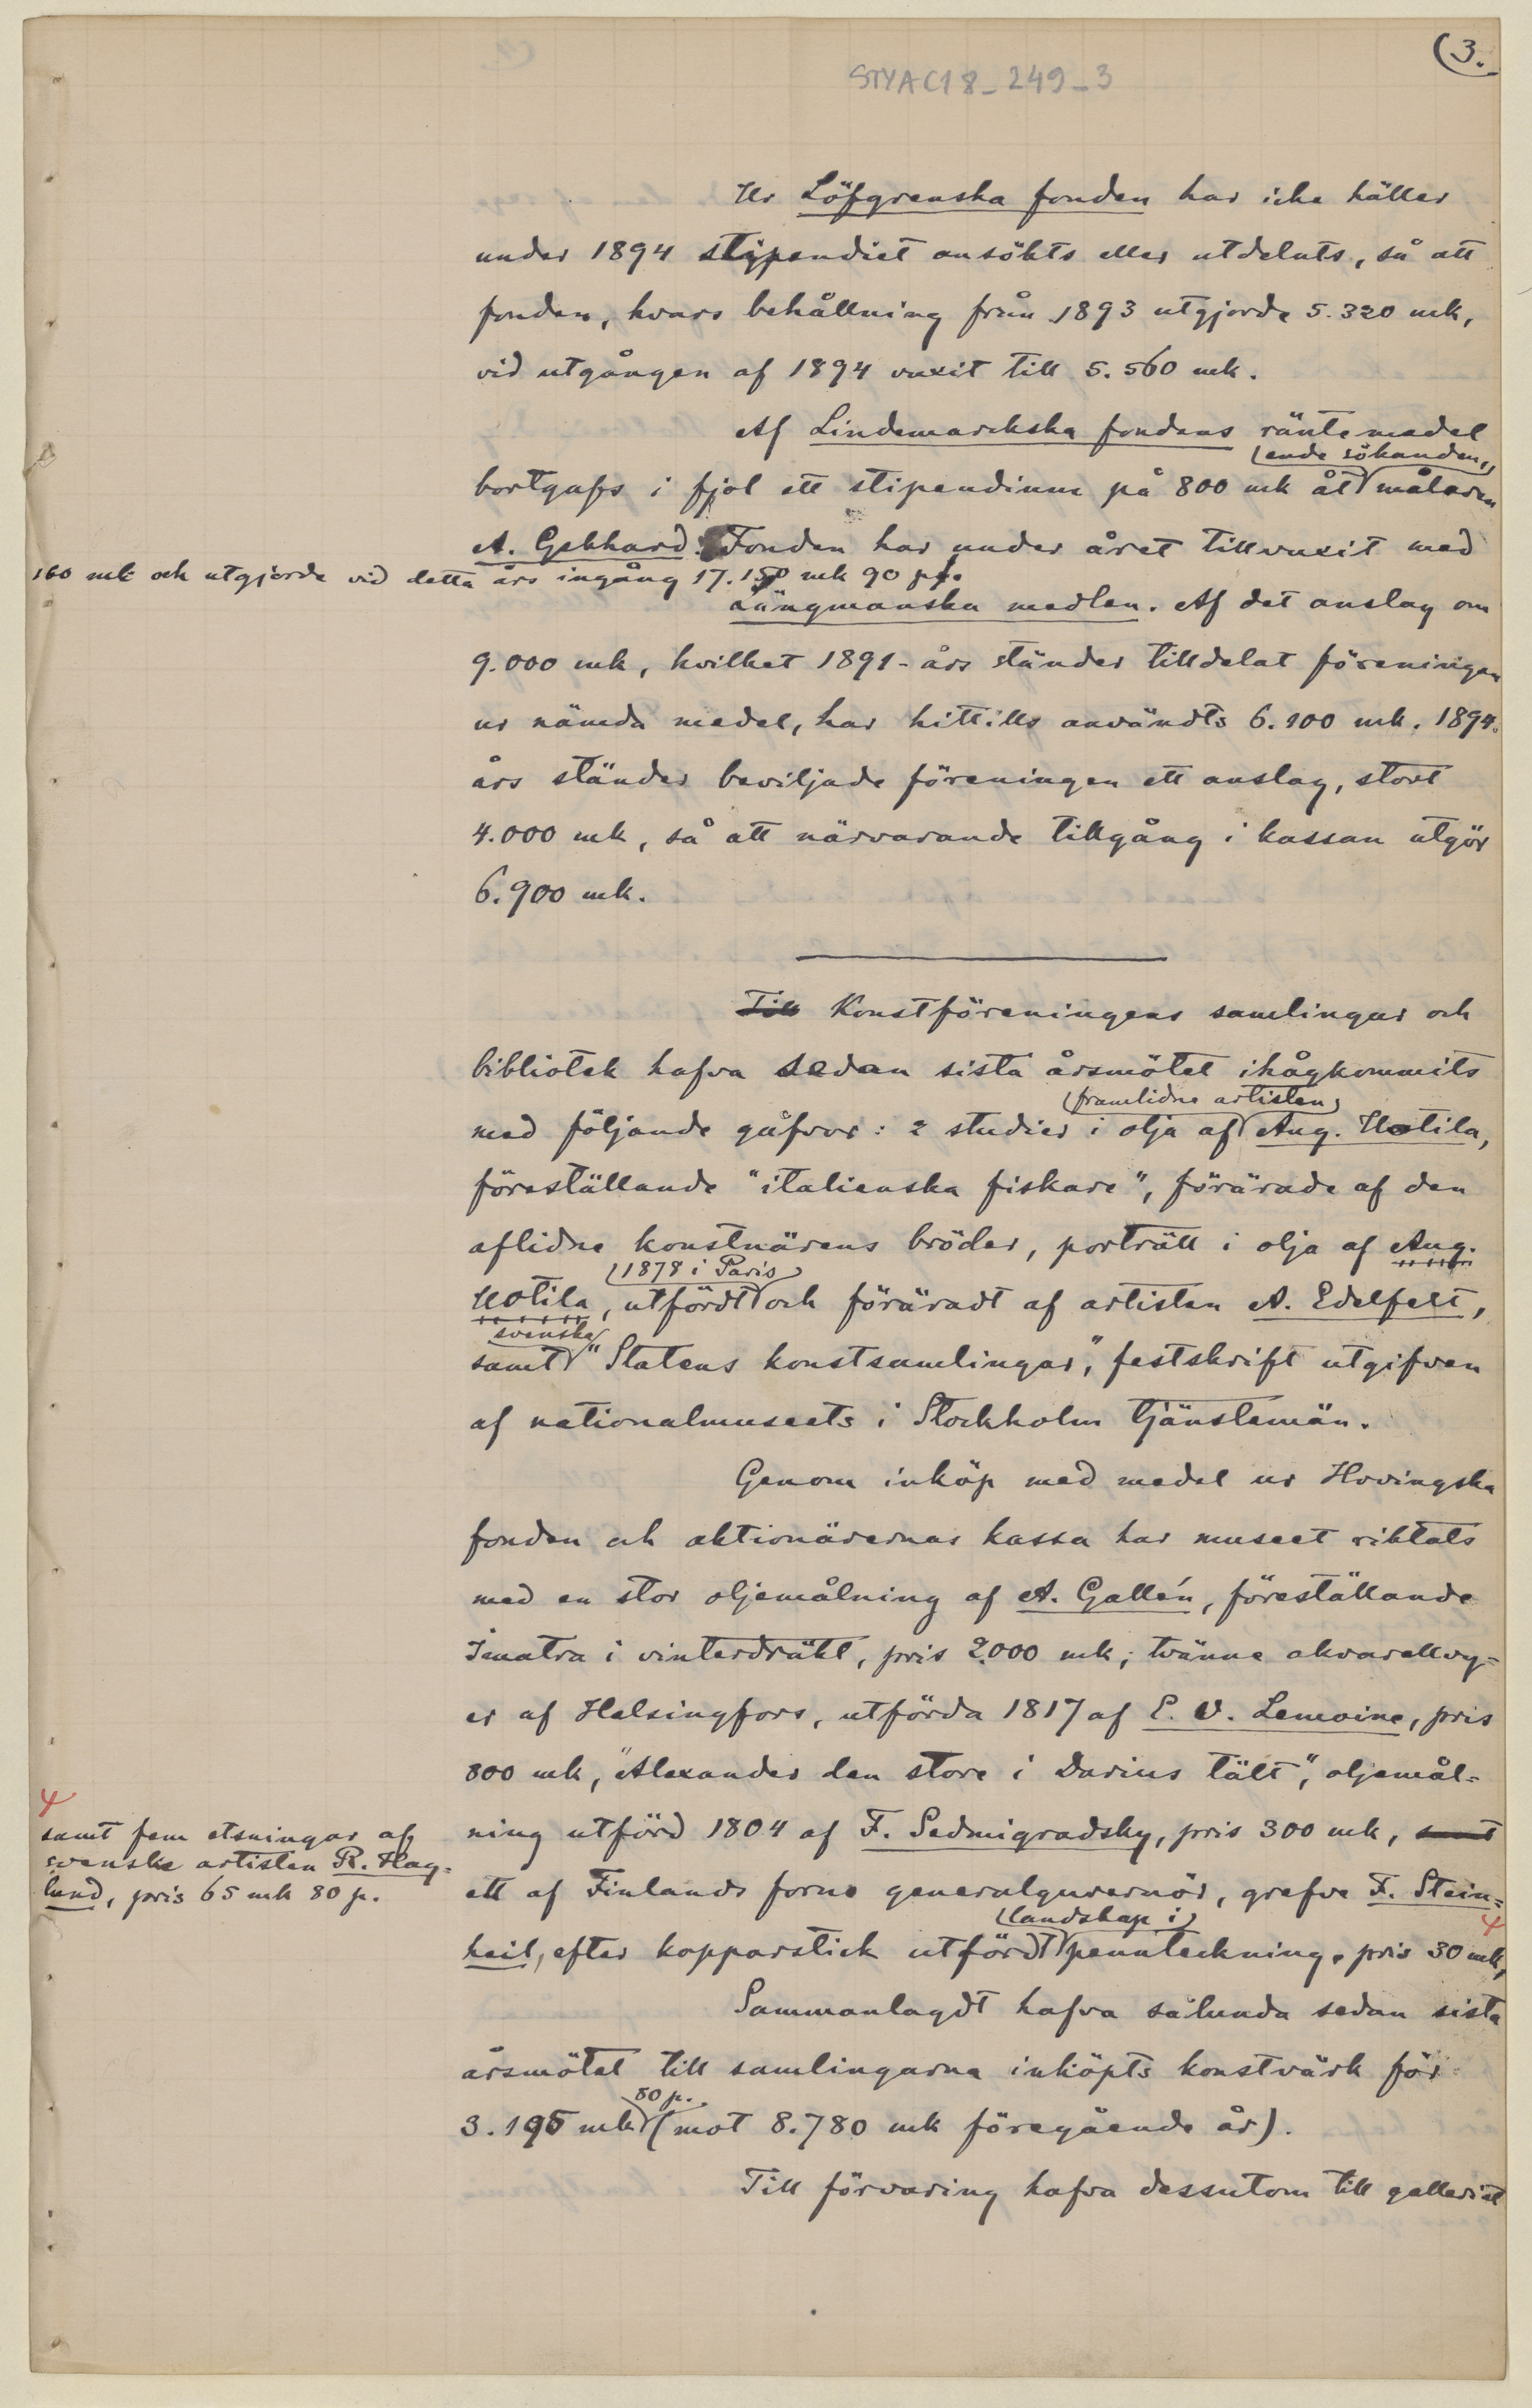 (3.
STYAC18_249_3
Ur Löfgrenska fonden har icke häller
under 1894 stipendiet ansökts eller utdelats, så att
fonden, hvars behållning från 1893 utgjorde 5.320 mk,
vid utgången af 1894 vuxit till 5.560 mk.
Af Lindemarckska fondens räntemedel
ende sökanden,
bortgafs i fjol ett stipendium på 800 mk åt målaren
A. Gebhard. Fonden har under året tillvuxit med
160 mk och utgjorde vid detta års ingång 17.150 mk 90 p.
Längmanska medlen. Af det anslag om
9.000 mk, hvilket 1891-års ständer tilldelat föreningen
ur nämda medel, har hittills användts 6.100 mk. 1894.
års ständer beviljade föreningen ett anslag, stort
4.000 mk, så att närvarande tillgång i kassan utgör
6.900 mk.
Till Konstföreningens samlingar och
bibliotek hafva sedan sista årsmötet ihågkommits
framlidne artisten
med följande gåfvor: 2 studier i olja af Aug. Uotila,
föreställande "italienska fiskare", förärade af den
aflidne konstnärens bröder, porträtt i olja af Aug.
1878 i Paris
Uotila, utfördt och föräradt af artisten A. Edelfelt,
svenska
samt "Statens konstsamlingar," festskrift utgifven
af nationalmuseets i Stockholm tjänstemän.
Genom inköp med medel ur Hovingska
fonden och aktionärernas kassa har museet riktats
med en stor oljemålning af A. Gallén, föreställande
Imatra i vinterdräkt, pris 2.000 mk; tvänne akvarellvy=
er af Helsingfors, utförda 1817 af E. V. Lemoine, pris
800 mk, "Alexander den store i Darius tält", oljemål=
ning utförd 1804 af F. Sedmigradsky, pris 300 mk, samt
ett af Finlands forne generalguvernör, grefve F. Stein=
landskap i
heil, efter kopparstick utfördt penntekning, pris 30 mk,
samt fem etsningar af
svenske artisten R. Hag=
lund, pris 65 mk 80 p.
Sammanlagdt hafva sålunda sedan sista
årsmötet till samlingarna inköpts konstvärk för
80 p.
3.195 mk (mot 8.780 mk föregående år).
Till förvaring hafva dessutom till galleriet